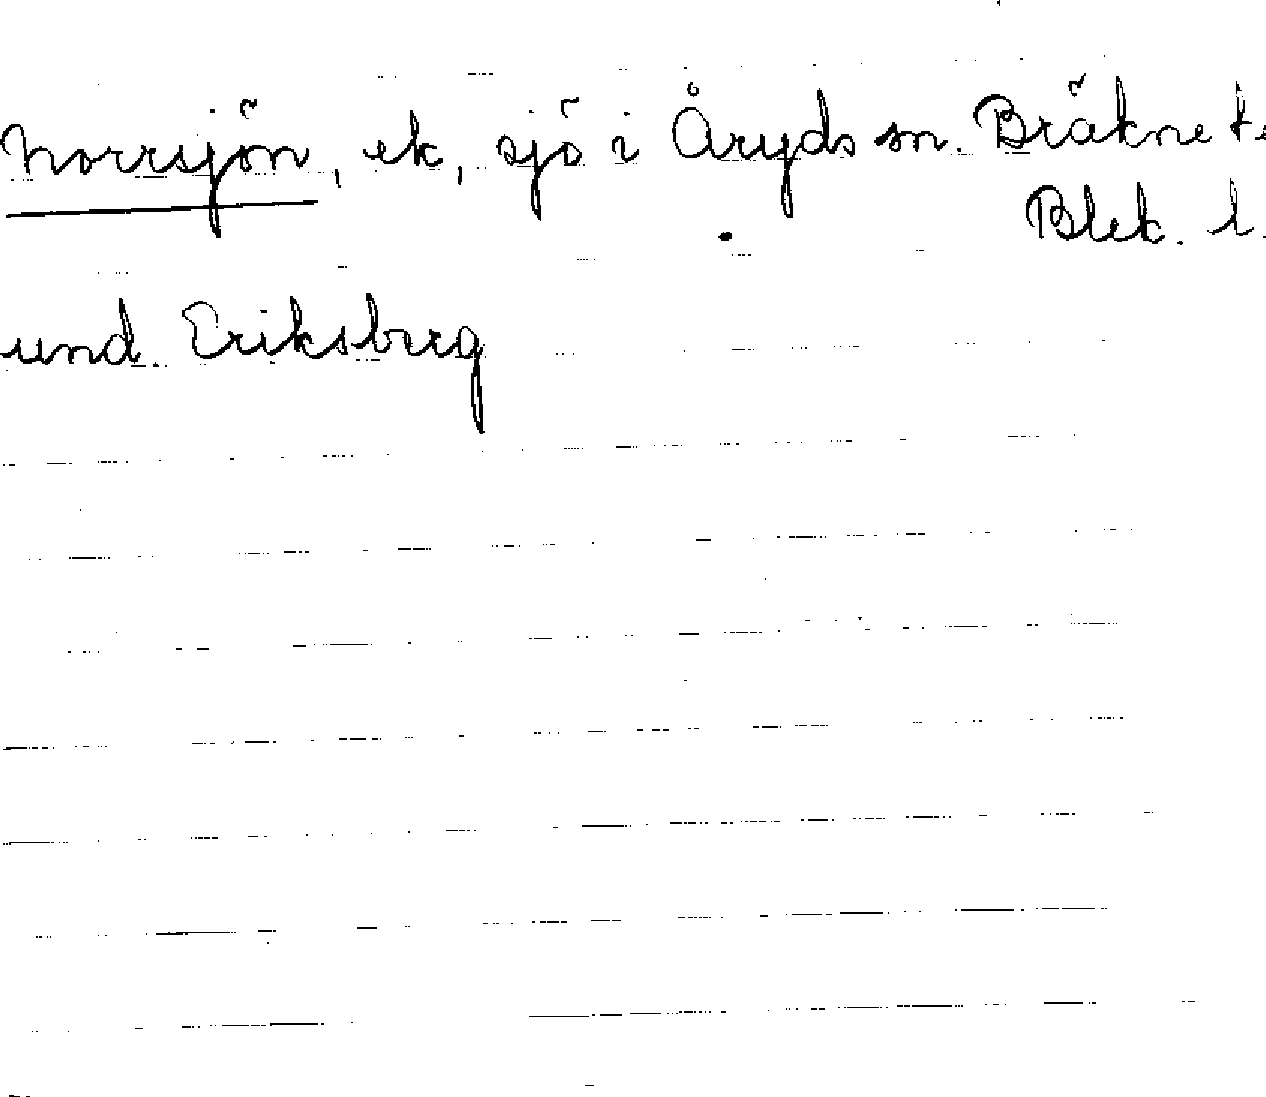 Norrsjön, ek, sjö i Åryds sn. Bräkne
Blek. l.
und. Eriksberg